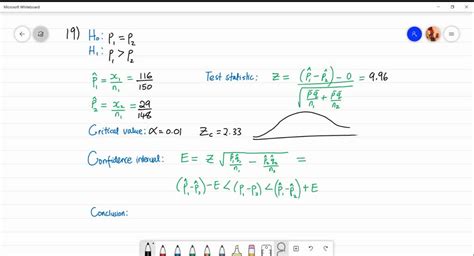 Microsoft Whiteboard
19) H₀: p₁ = p₂
H₁: p₁ > p₂
p̂₁ = x₁/n₁ = 116/150
Test statistic: Z = (p̂₁ - p̂₂) - 0 / √(p̄q̄/n₁ + p̄q̄/n₂) = 9.96
p̂₂ = x₂/n₂ = 29/148
Critical value: α = 0.01 Z_c = 2.33
Confidence interval: E = z √(p̂₁q̂₁/n₁ - p̂₂q̂₂/n₂) =
(p̂₁-p̂₂)-E < (p₁-p₂) < (p̂₁-p̂₂)+E
Conclusion: